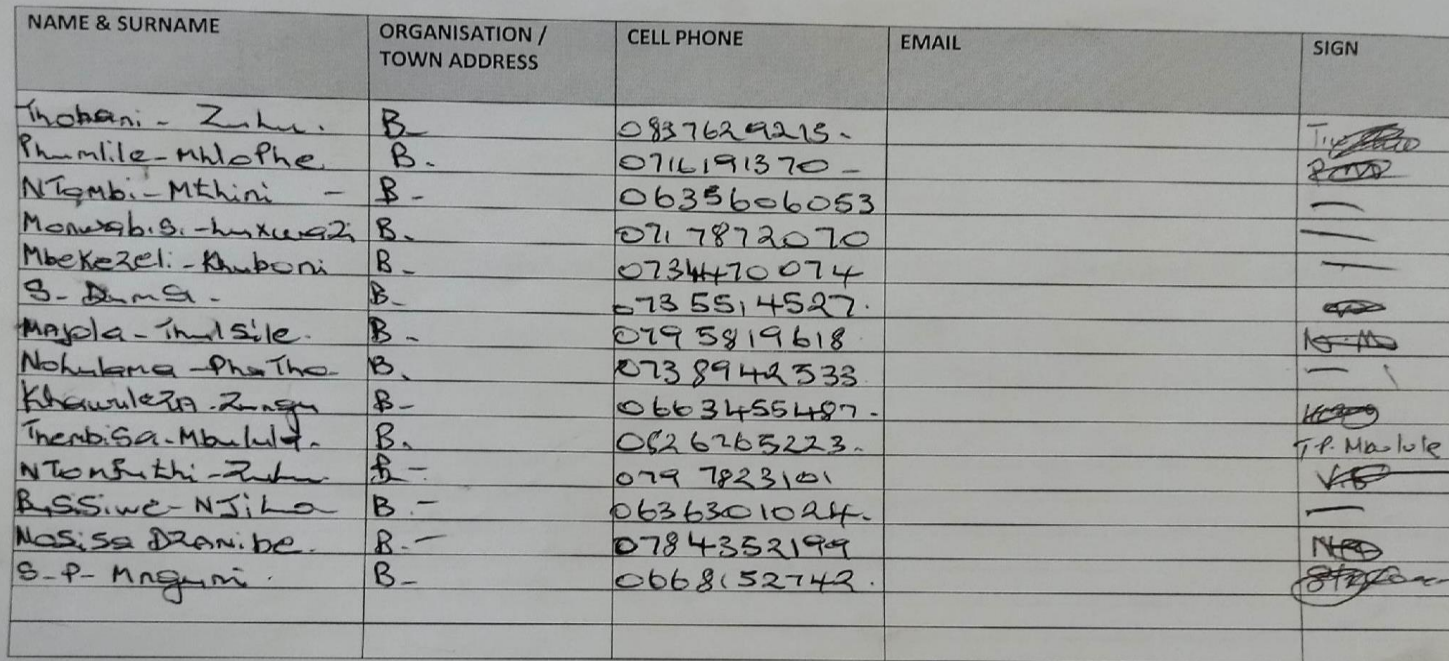 NAME & SURNAME ORGANISATION / TOWN ADDRESS CELL PHONE EMAIL SIGN
Thobani - Zulu. B- 0837629215-
Phumlile-Mhlophe B. 0716191370 -
NTombi-Mthini - B - 0635606053 —
Monwabisi - B. 0717872070 —
Mbekezeli-Khuboni B. 0734470074 —
S- Duma - B- 0735514527.
Majola-Thulsile. B - 0795819618
-PhaTho- B. 0738942533 —
Khawuleza-Zungu B- 0663455487-
Thembisa-Mbulula. B. 0826265223. T.P. Mbulule
-Zulu. B- 079 7823101
B.SSiwe-NJiLo B.- 0636301024. —
Nosisa DZANibe. B.- 0784352199
S-P- Mnguni. B- 0668152742.